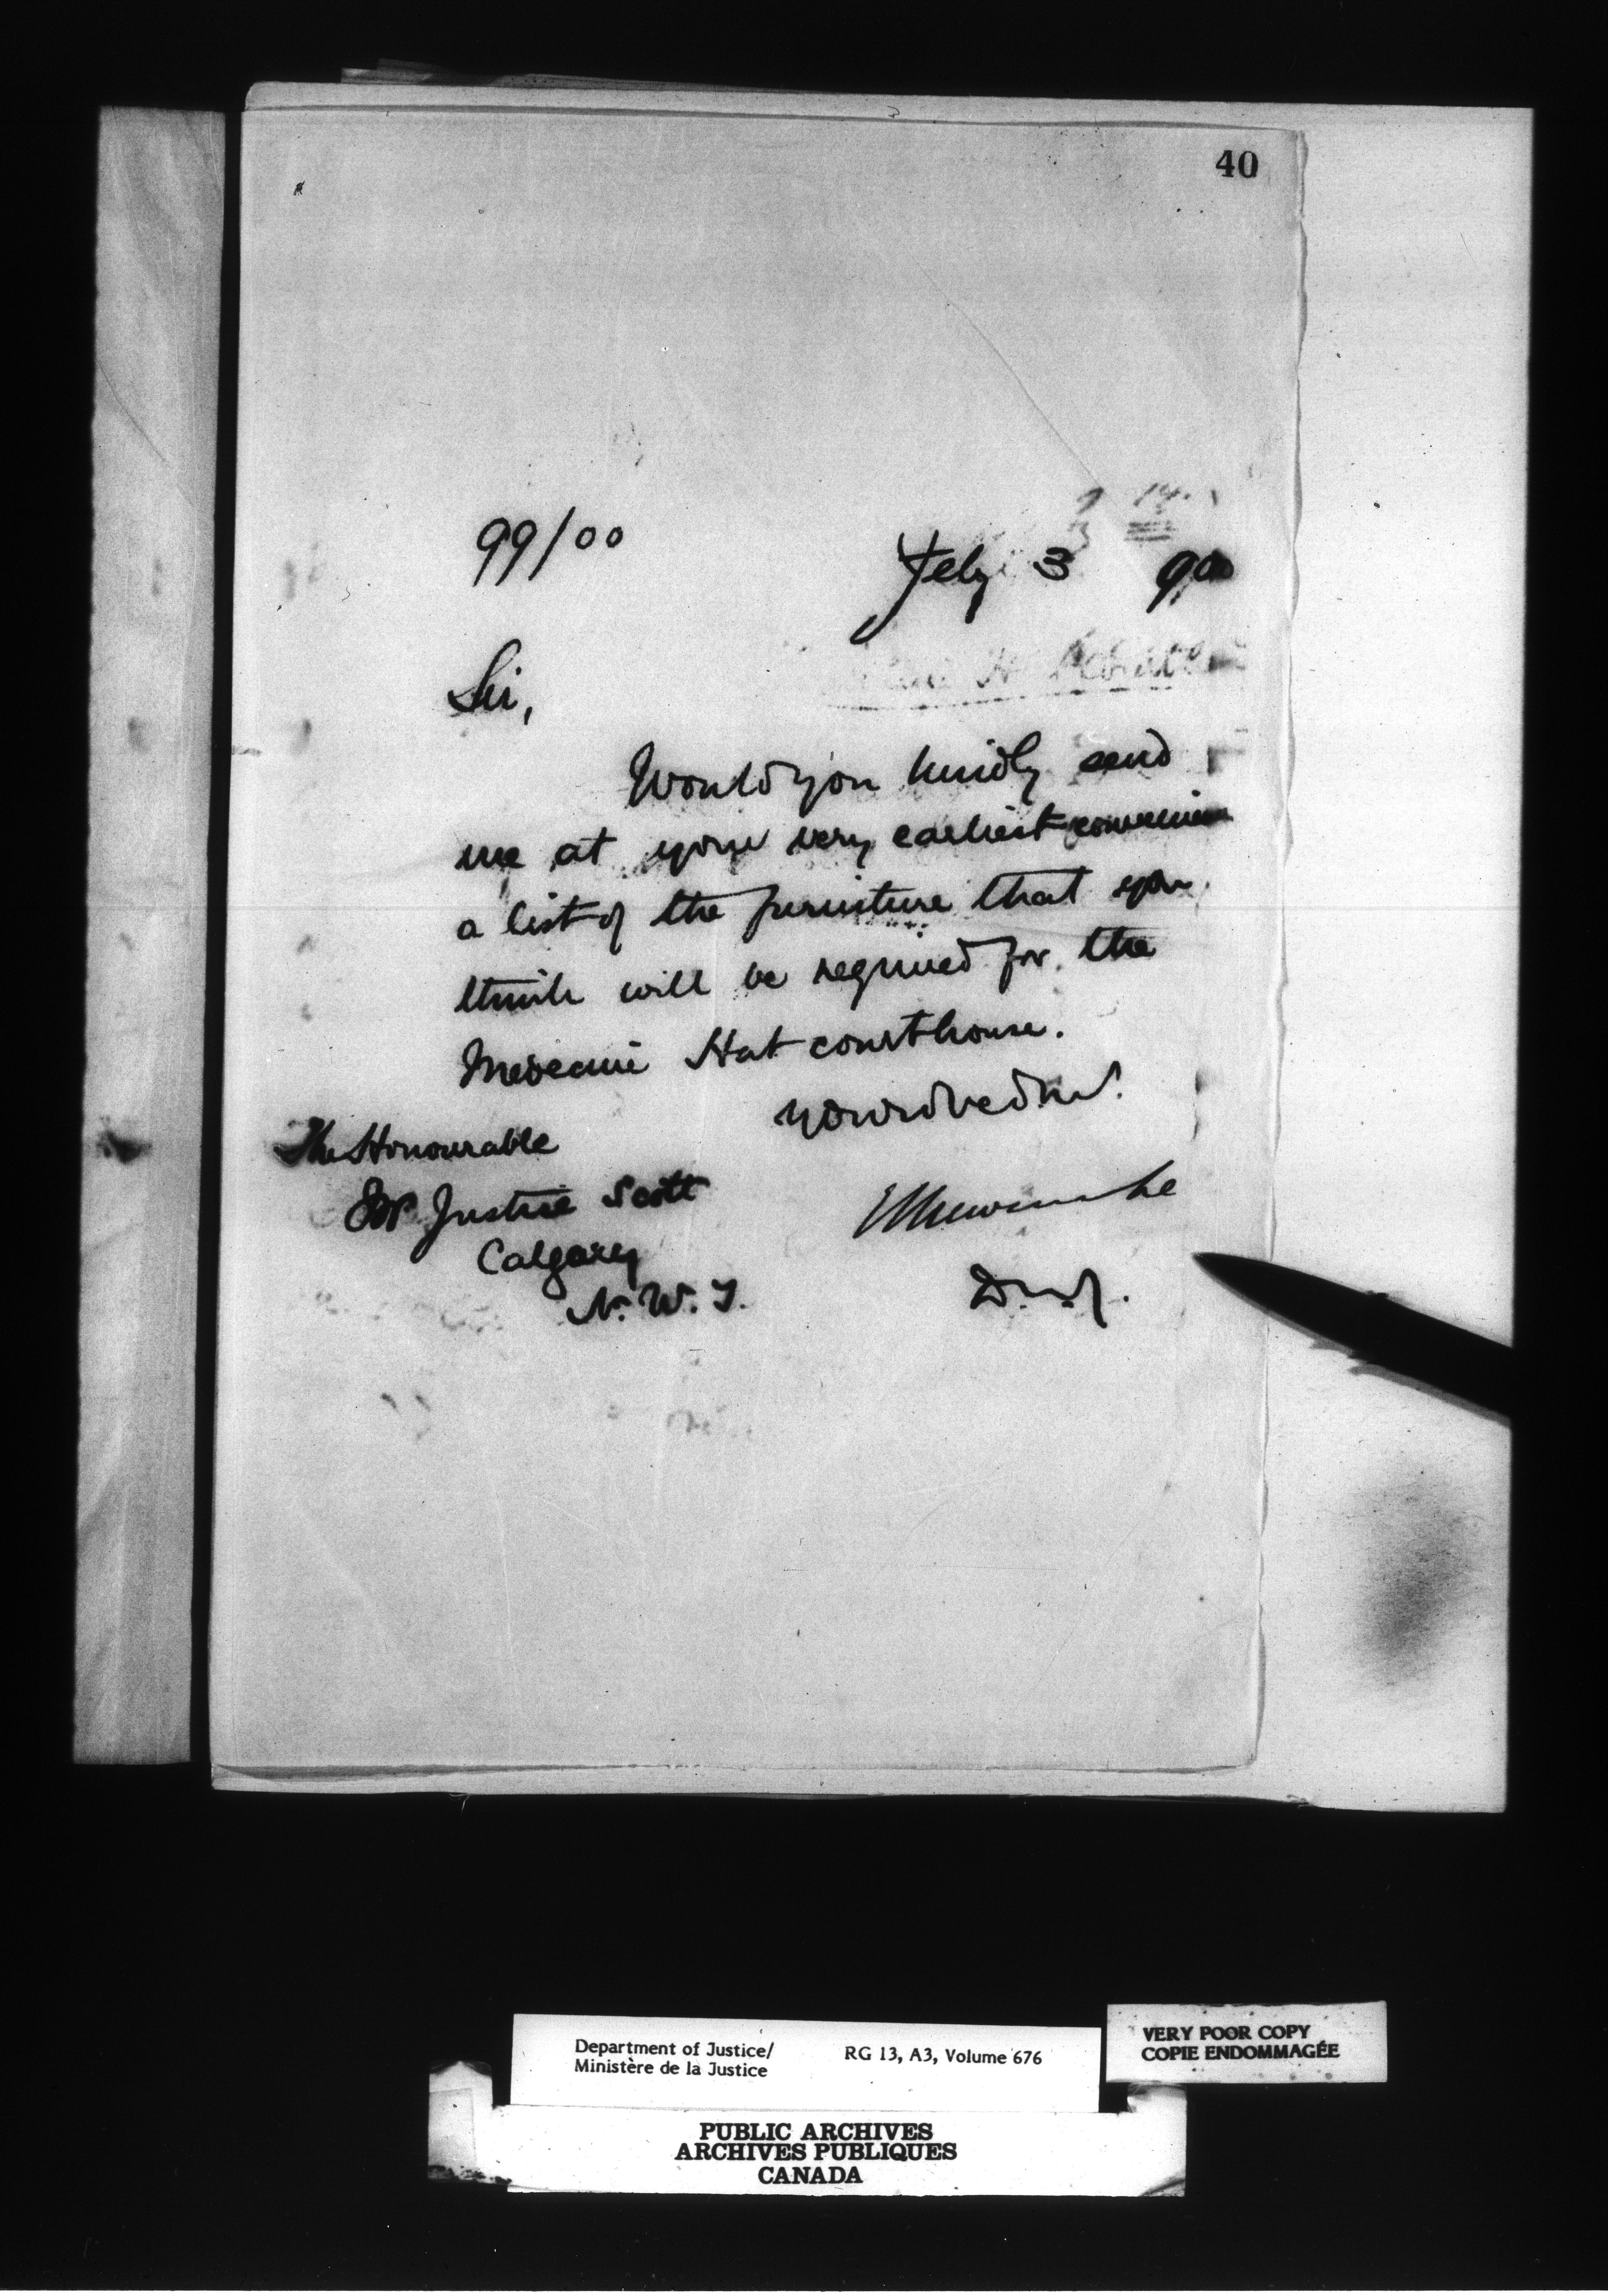 40
99/00
Feby 3 900
Sir,
Would you kindly send
me at your very earliest convenience
a list of the furniture that you
think will be required for the
Medecine Hat courthouse.
The Honourable
Mr Justice Scott
Calgary
N. W. T.
ELNewcombe
D.M.J.
Department of Justice/
Ministère de la Justice
RG 13, A3, Volume 676
VERY POOR COPY
COPIE ENDOMMAGÉE
PUBLIC ARCHIVES
ARCHIVES PUBLIQUES
CANADA